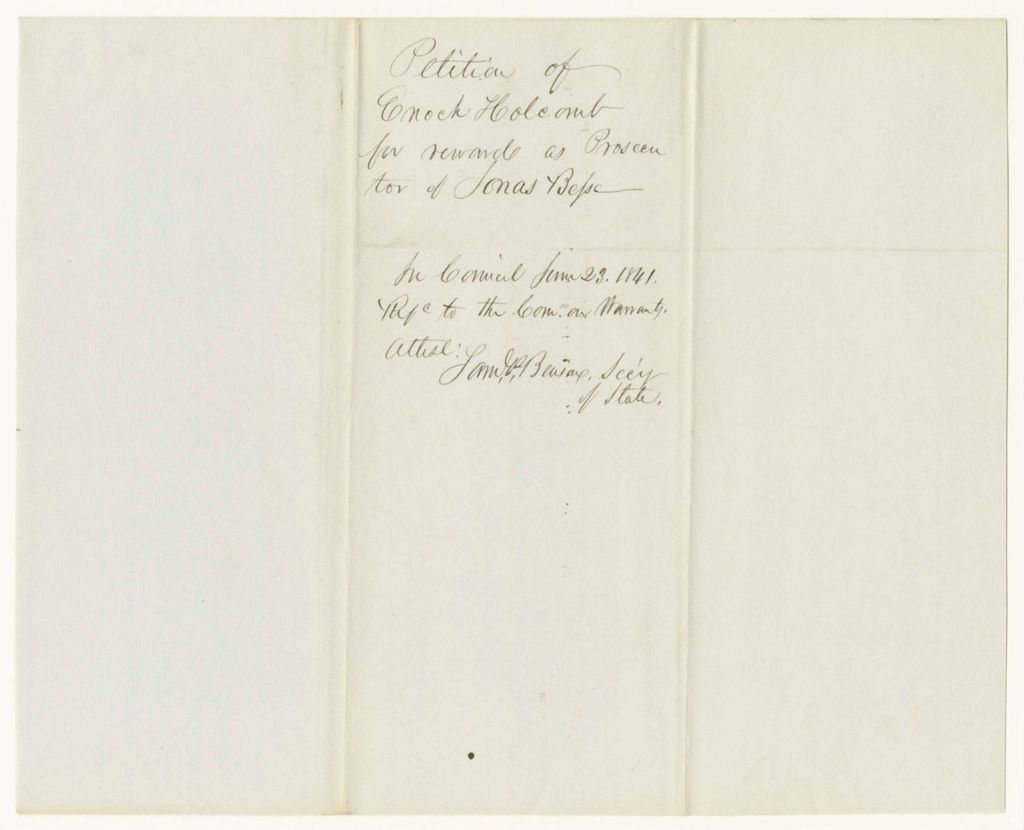 Petition of
Enoch Holcomb
for reward as Prosecu
tor of Jonas Besse
In Council June 23. 1841.
Refd to the Com. on Warrants.
Attest:
Saml P. Benson, Secy
of State.